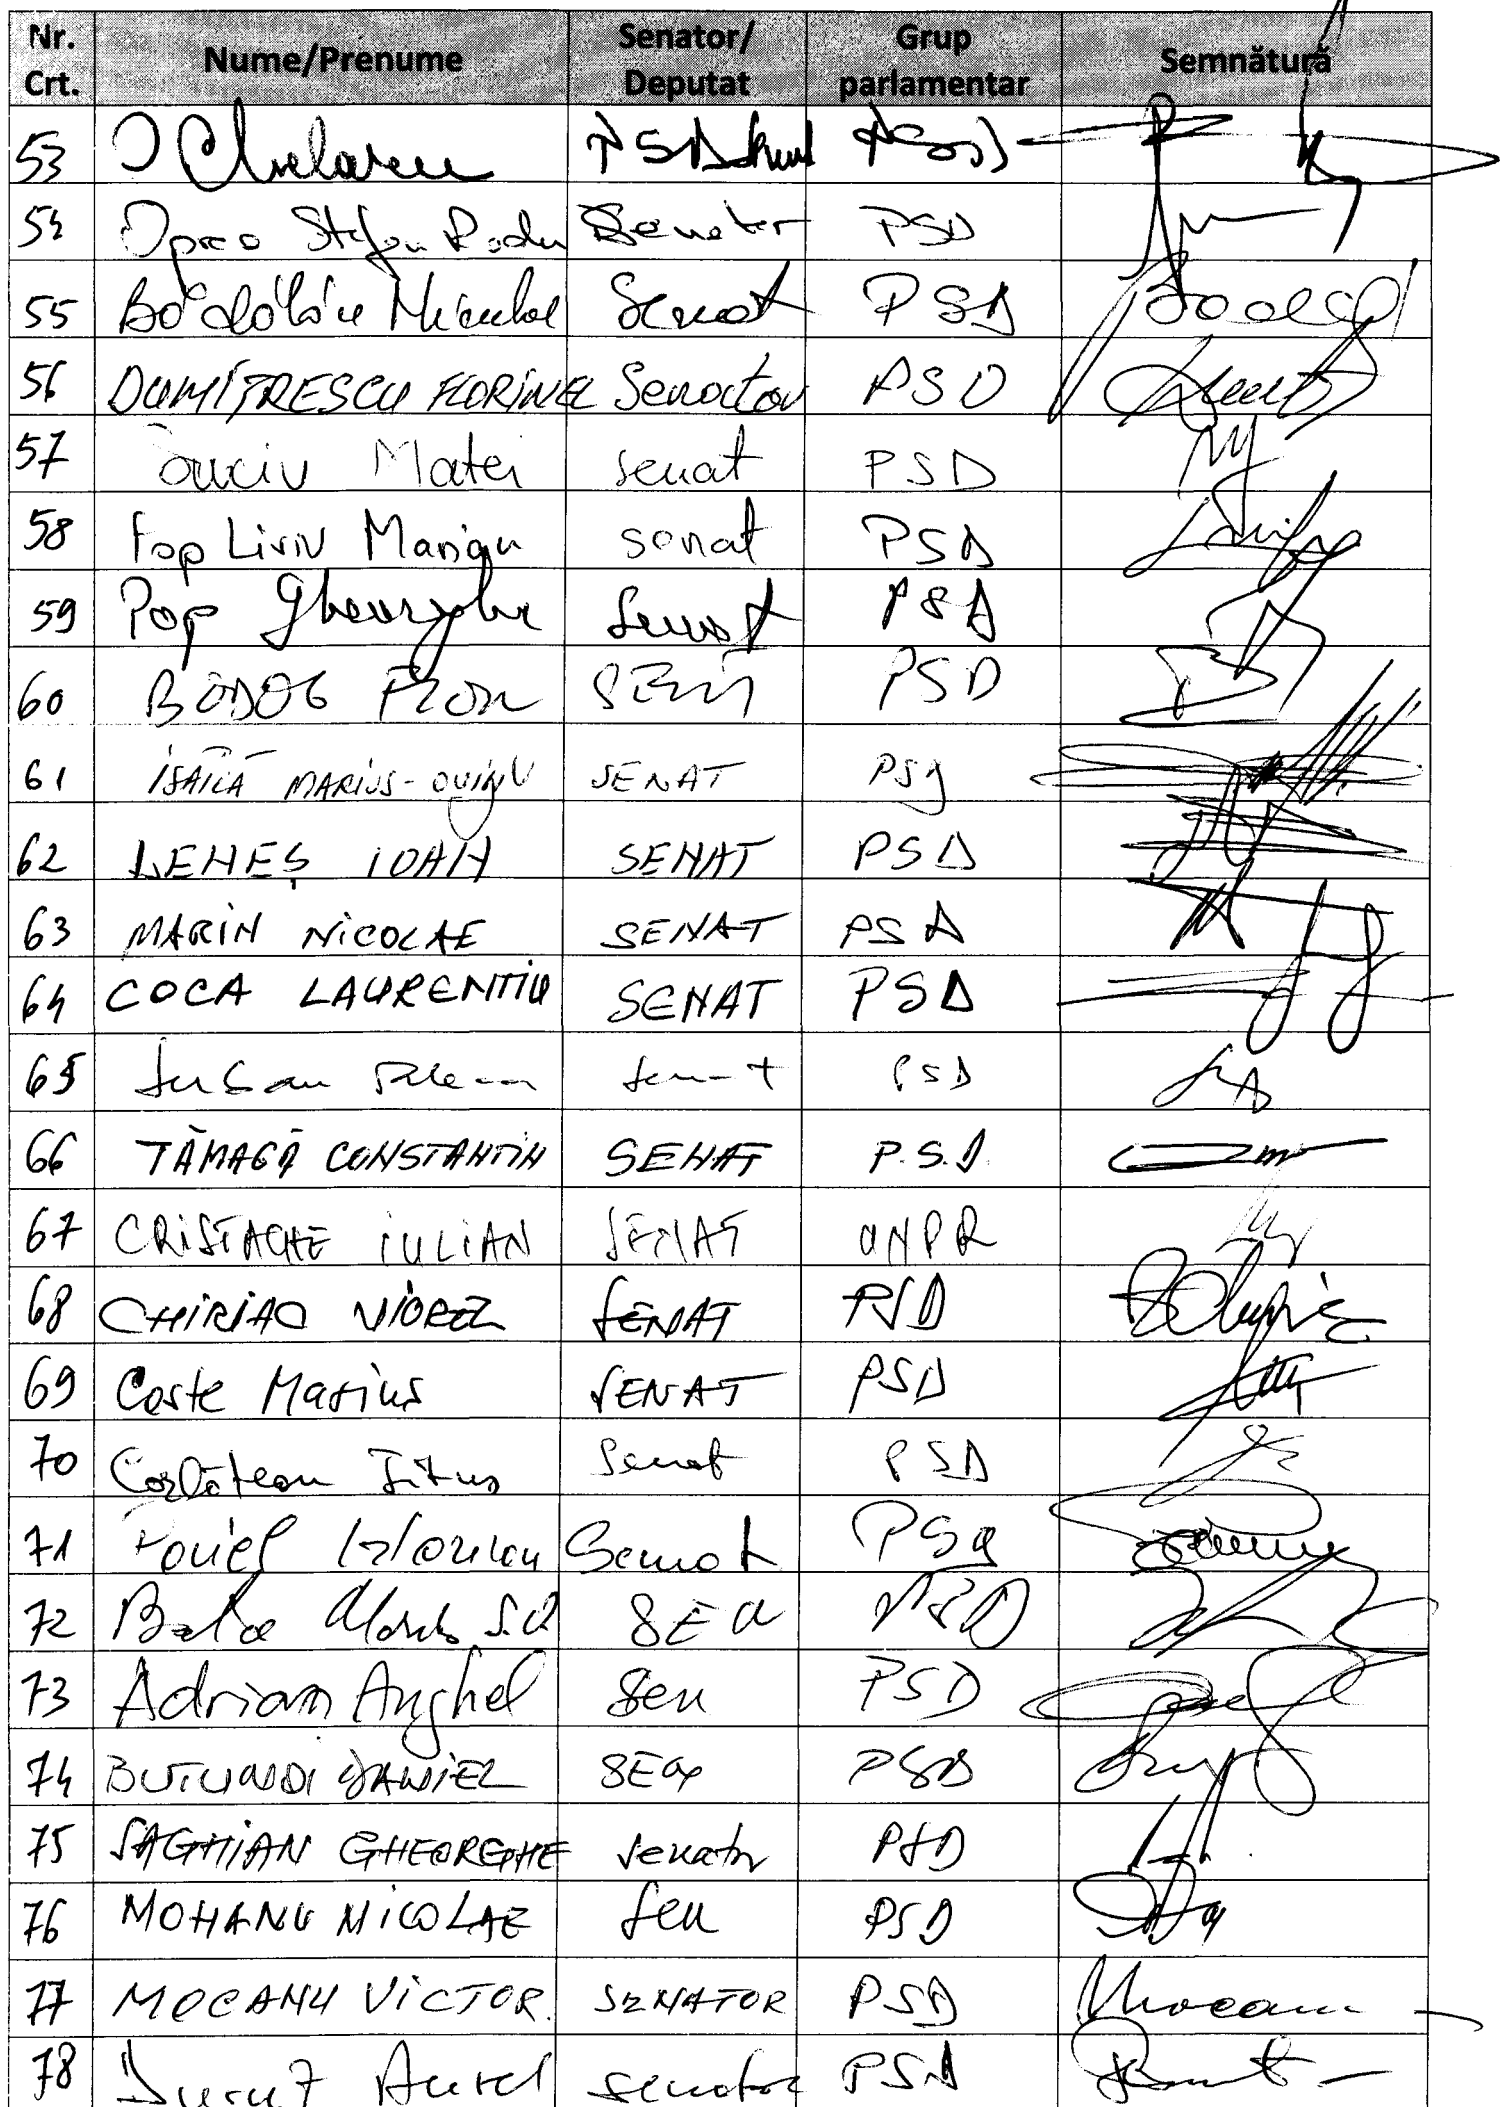 Nr. Crt. Nume/Prenume Senator/ Deputat Grup parlamentar Semnătură
53 I Chelaru PSD PSD
54 Oprea Stefan Radu Senator PSD
55 Bădălău Niculae Senat PSD
56 DUMITRESCU FLORINEL Senator PSD
57 Suciu Matei senat PSD
58 Pop Liviu Marian senat PSD
59 Pop Gheorghe Senat PSD
60 BODOG FLORIN PSD
61 ISĂILĂ MARIUS-OVIDIU SENAT PSD
62 DENEȘ IOAN SENAT PSD
63 MARIN NICOLAE SENAT PSD
64 COCA LAURENTIU SENAT PSD
65 Senat PSD
66 TĂMAGĂ CONSTANTIN SENAT P.S.D.
67 CRISTACHE IULIAN SENAT UNPR
68 CHIRIAC VIOREL SENAT PSD
69 Coste Marius SENAT PSD
70 Corlățean Titus Senat PSD
71 Senat PSD
72 SEN PSD
73 Adrian Anghel Sen PSD
74 BUTUNOI DANIEL SEN PSD
75 SAGHIAN GHEORGHE senator PSD
76 MOHANU NICOLAE Sen PSD
77 MOCANU VICTOR. SENATOR PSD Mocanu
78 Duruț Aurel senator PSD